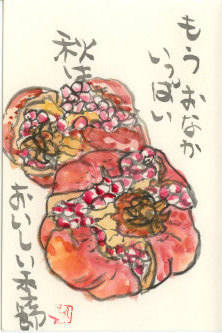 もうおなか
いっぱい
秋は
おいしい季節